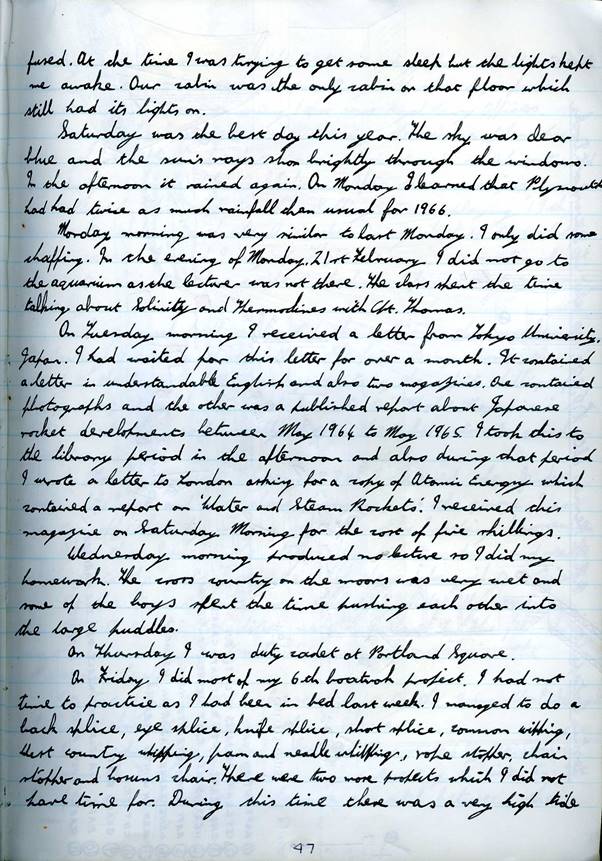 fused. At the time I was trying to get some sleep but the lights kept
me awake. Our cabin was the only cabin on that floor which
still had its lights on.
Saturday was the best day this year. The sky was clear
blue and the sun's rays shon brightly through the windows.
In the afternoon it rained again. On Monday I learned that Plymouth
had had twice as much rainfall then usual for 1966.
Monday morning was very similar to last Monday. I only did some
chaffing. In the evening of Monday, 21st February I did not go to
the aquarium as the lecturer was not there. The class spent the time
talking about Solinity and Thermoclines with Cpt. Thomas.
On Tuesday morning I received a letter from Tokyo University,
Japan. I had waited for this letter for over a month. It contained
a letter in understandable English and also two magazines. One contained
photographs and the other was a published report about Japanese
rocket developments between May 1964 to May 1965. I took this to
the library period in the afternoon and also during that period
I wrote a letter to London asking for a copy of Atomic Energy which
contained a report on 'Water and Steam Rockets'. I received this
magazine on Saturday Morning for the cost of five shillings.
Wednesday morning produced no lecture so I did my
homework. The cross country on the moors was very wet and
some of the boys spent the time pushing each other into
the large puddles.
On Thursday I was duty cadet at Portland Square.
On Friday I did most of my 6th boatwork project. I had not
time to practice as I had been in bed last week. I managed to do a
back splice, eye splice, knife splice, short splice, common whipping,
West country whipping, pam and needle whipping, rope stopper, chain
stopper and bosuns chair. There were two more projects which I did not
have time for. During this time there was a very high tide
47